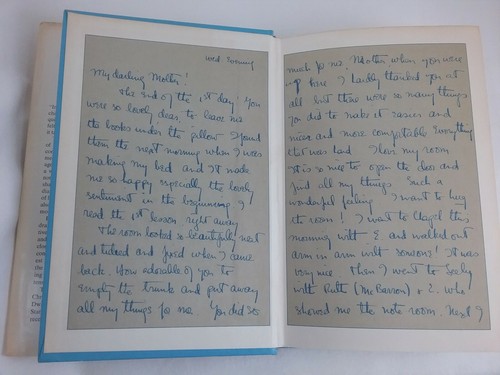 Wed Evening
My darling Mother!
The End of the 1st day! You
were so lovely dear, to leave me
the books under the pillow. I found
them the next morning when I was
making my bed and it made
me so happy especially the lovely
sentiment in the beginning. I
read the 1st lesson right away.
The room looked so beautifully neat
and tidied and fixed when I came
back. How adorable of you to
empty the trunk and put away
all my things for me. You did so
much for me, Mother when you were
up here. I hardly thanked you at
all but there were so many things
you did to make it easier and
nicer and more comfortable everything
that was hard. I love my room
It is so nice to open the door and
find all my things. Such a
wonderful feeling. I want to hug
the room! I went to Chapel this
morning with E and walked out
arm in arm with seniors! It was
very nice. Then I went to Seely
with Ruth (McCarron) + E. who
showed me the note room. Next I